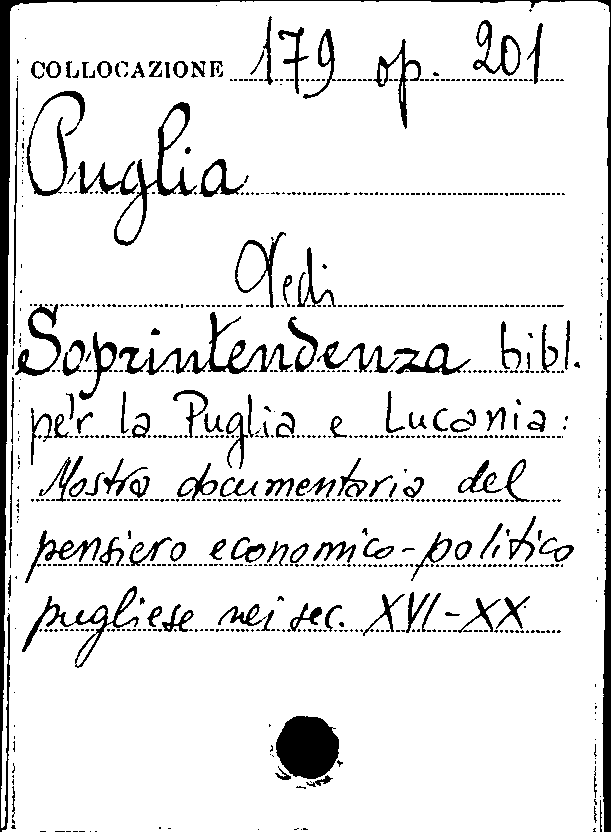 COLLOCAZIONE 179 op. 201
Puglia
Vedi
Soprintendenza bibl.
per la Puglia e Lucania:
Mostra documentaria del
pensiero economico-politico
pugliese nei sec. XVI-XX